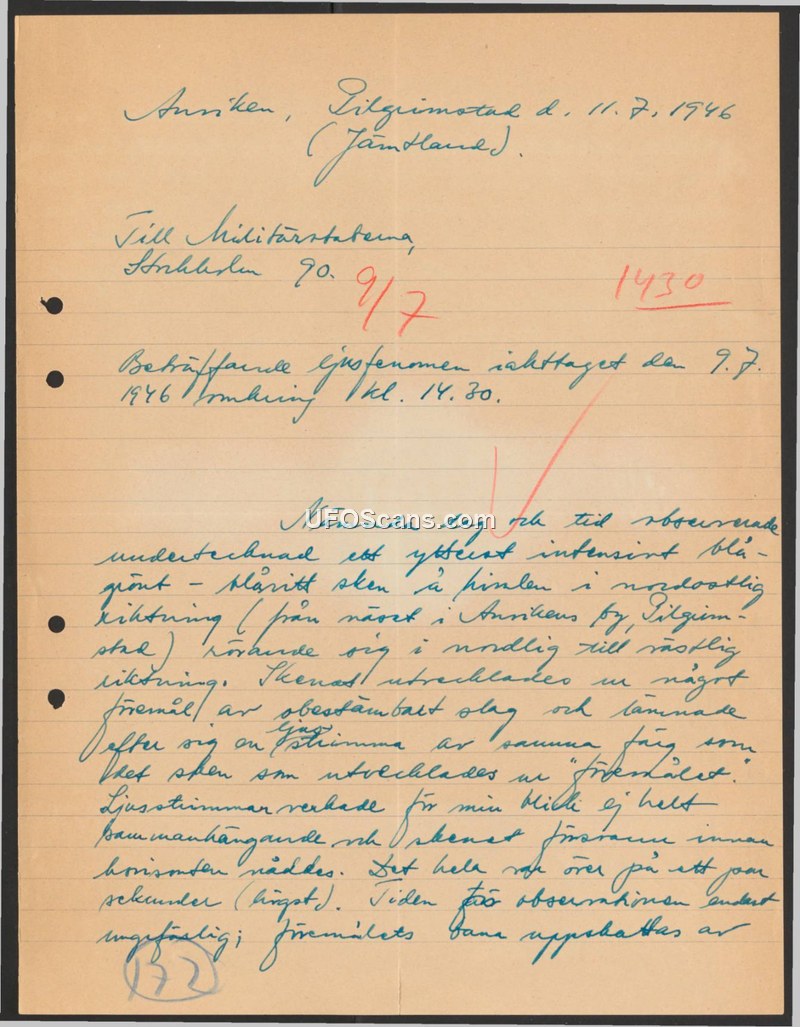 Ansiken, Pilgrimstad d. 11.7.1946
(Jämtland).
Till Militärstaberna,
Stockholm 90.
9/7
1430
Beträffande ljusfenomen iakttaget den 9.7.
1946 omkring kl. 14.30.
dag och tid observerade
UFOScans.com
undertecknad ett ytterst intensivt blå-
grönt - blåvitt sken å himlen i nordostlig
riktning (från näset i Ansikens by, Pilgrim-
stad) rörande sig i nordlig till västlig
riktning. Skenet utvecklades ur något
föremål av obestämbart slag och lämnade
efter sig en ljusstrimma av samma färg som
det sken som utvecklades ur "föremålet."
Ljusstrimman verkade för min blick ej helt
sammanhängande och skenet försvann innan
horisonten nåddes. Det hela var över på ett par
sekunder (högst). Tiden för observationen endast
ungefärlig; föremålets bana uppskattas av
172